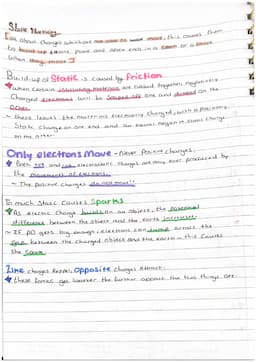 Static Electricity
Is about charges which are not able to move, this causes them
to build up in one place and often ends in a spark or a shock
when they move.
Build-up of Static is caused by friction
When certain insulating materials are rubbed together, negatively
charged electrons will be scraped off one and dumped on the
other.
~ these leaves the materials electrically charged, with a positive
static charge on one end and an equal negative static charge
on the other.
Only electrons Move - Never positive charges.
Both +ve and -ve electrostatic charges are only ever produced by
the movement of electrons.
~ The positive charges do not move!!
Too much Static causes Sparks
As electric charge builds on an object, the potential
different between the object and the earth increases.
~ If pd gets big enough, electrons can jump across the
gap between the charged object and the earth - this causes
the Spark
Like charges Repel, Opposite charges Attract.
these forces get weaker the further apart the two things are.